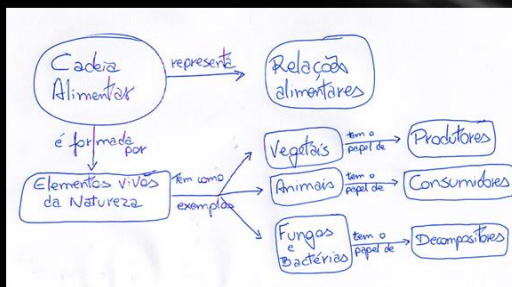 Cadeia
Alimentar
representa
Relações
alimentares
é formada
por
Elementos vivos
da Natureza
Tem como
exemplos
Vegetais
tem o
papel de
Produtores
Animais
tem o
papel de
Consumidores
Fungos
e
Bactérias
tem o
papel de
Decompositores